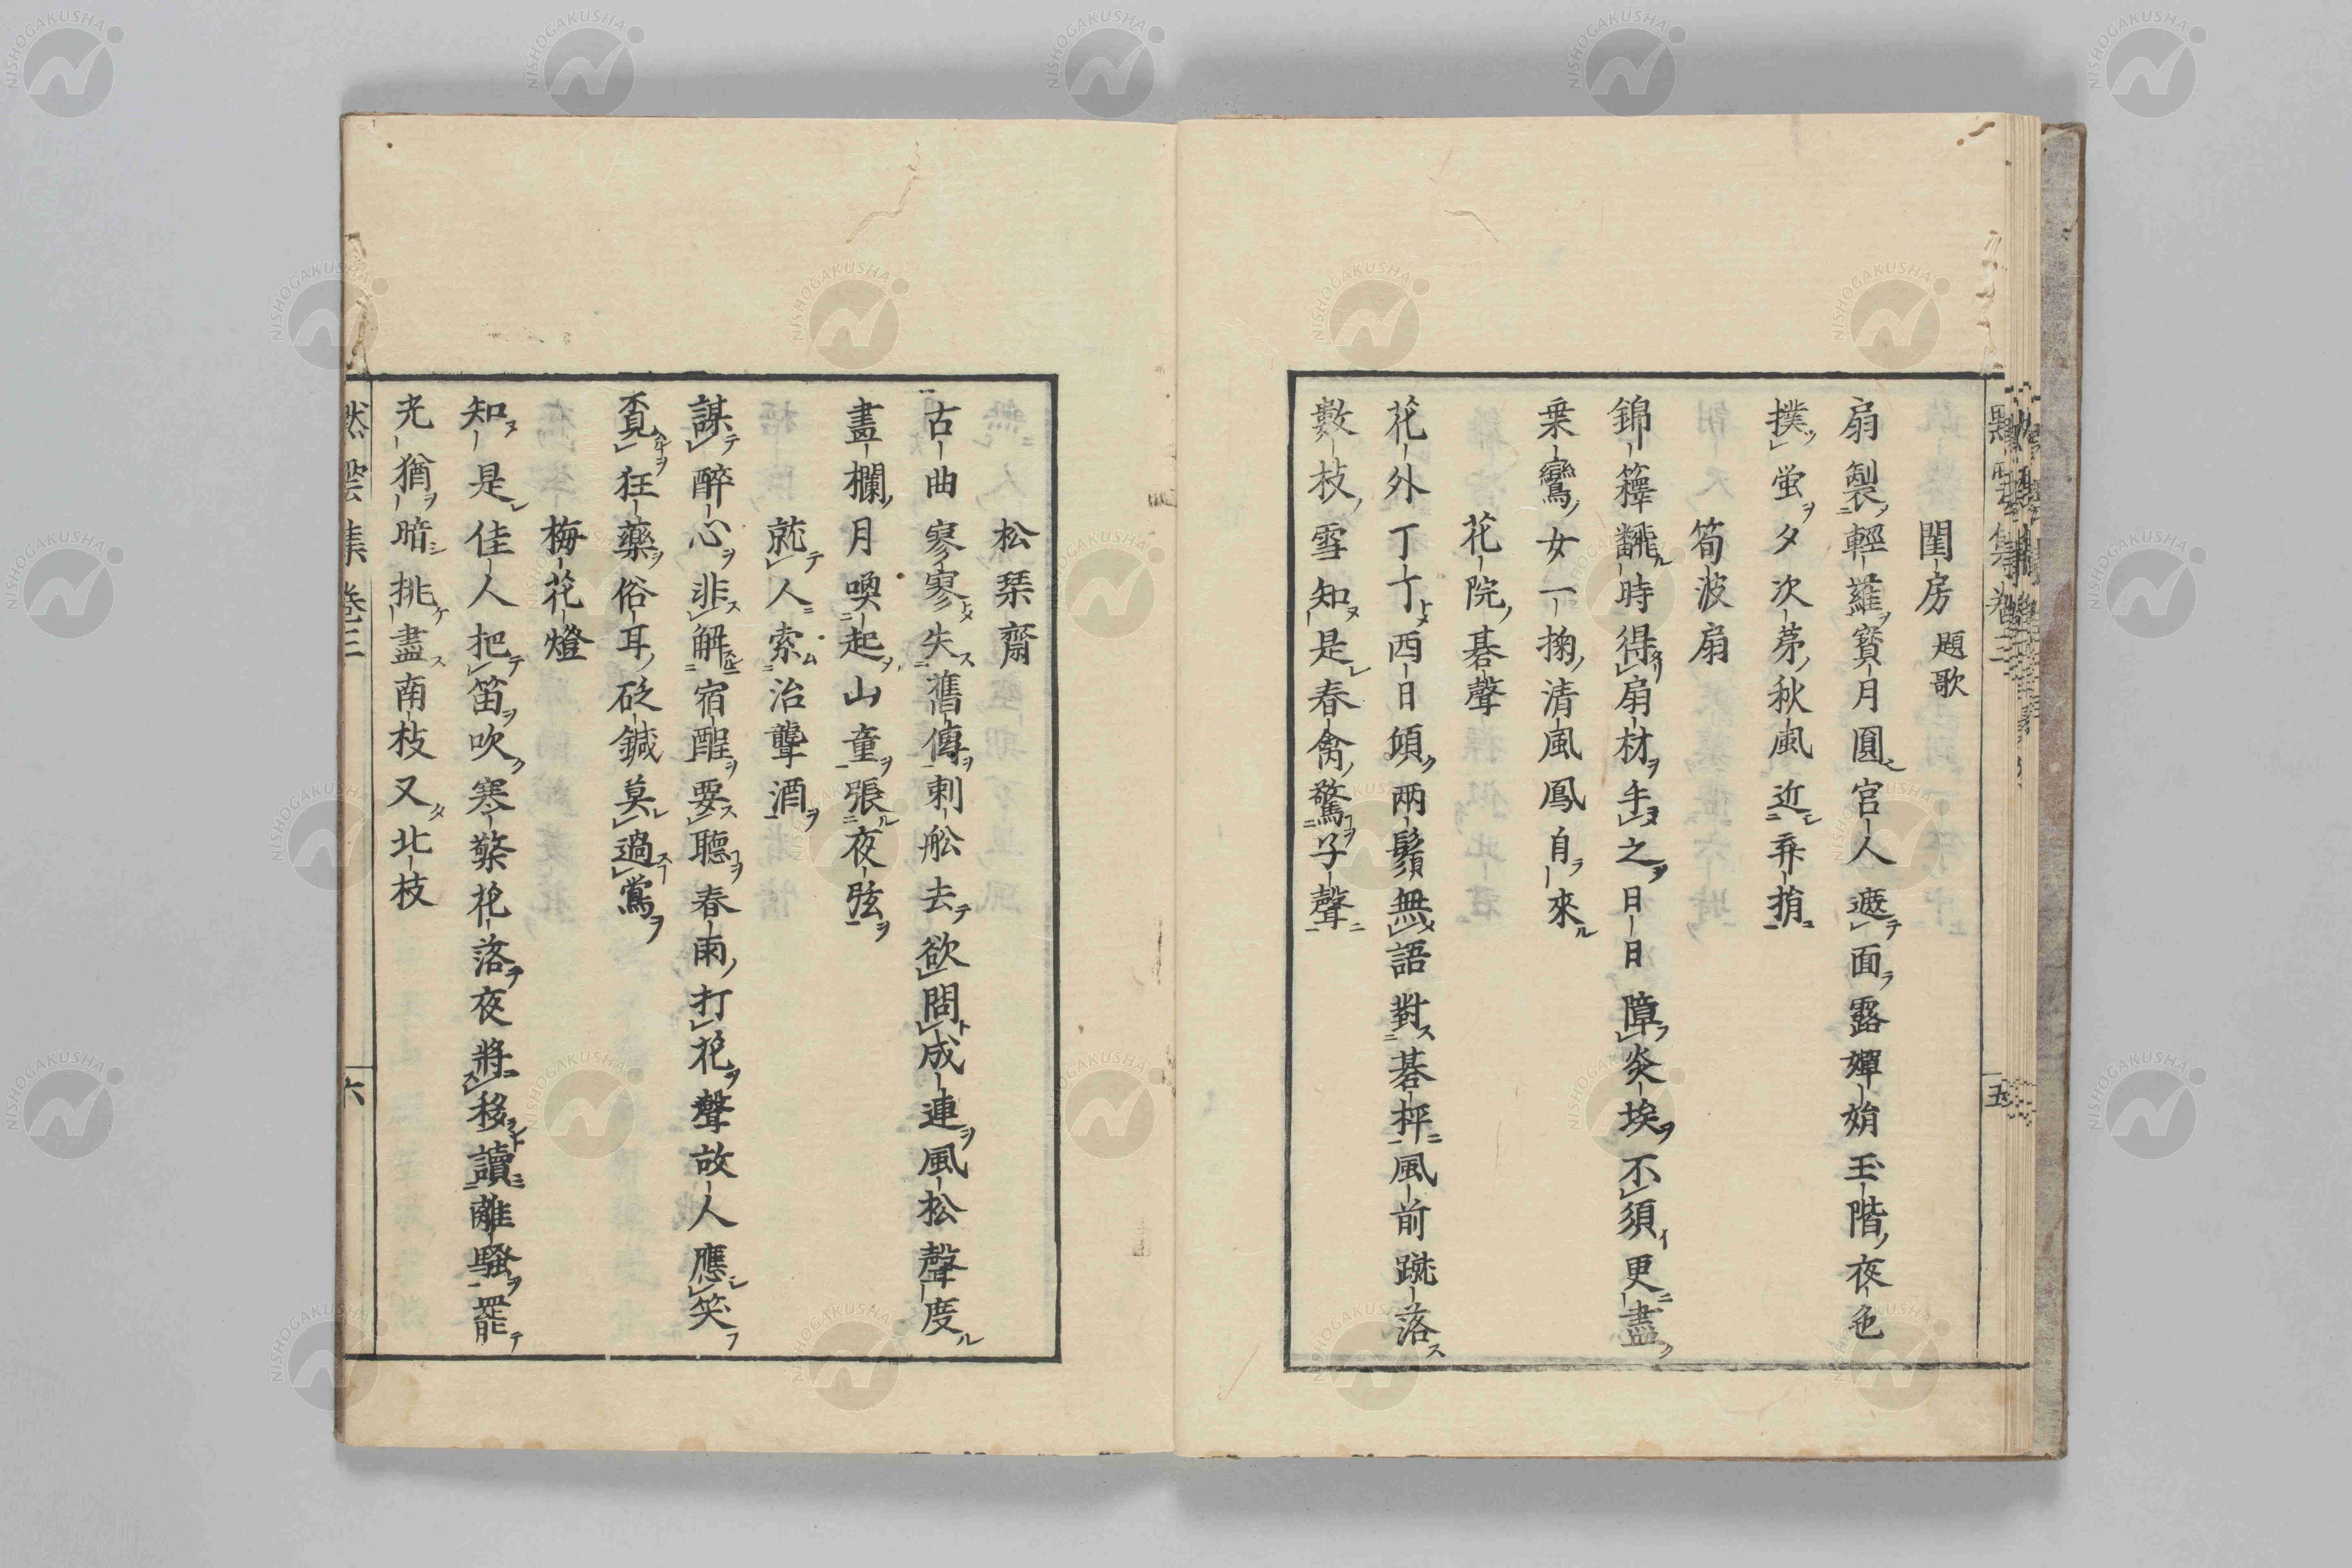 閨房題歌
扇製輕羅寶月圓宮人遮面露嬋娟玉階夜色
撲蛍夕次茅秋風近弃捐
筍波扇
錦籜翻時得扇材手之日日障炎埃不須更盡
乗鸞女一掬清風鳳自來
花院碁聲
花外丁丁西日傾兩鬚無語對碁枰風前蹴落
數枝雪知是春禽驚子聲
松琹齋
古曲寥寥失舊傳剌舩去欲問成連風松聲度
盡欄月喚起山童張夜弦
就人索治聾酒
謀醉心非解宿酲要聽春雨打花聲故人應笑
覔狂藥俗耳砭鍼莫過鶯
梅花燈
知是佳人把笛吹寒檠花落夜將移讀離騷罷
光猶暗挑盡南枝又北枝
然雲集卷三
六
五
NISHOGAKUSHA